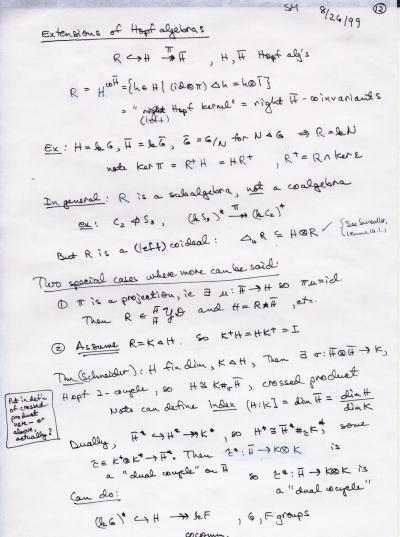 SM 8/26/99 (12)
Extensions of Hopf algebras
R ↪ H →π H̄ , H, H̄ Hopf alg's
R = H^{co H̄} = {h ∈ H | (id ⊗ π) Δh = h ⊗ 1̄}
= "right Hopf kernel" = right H̄ - coinvariants
(left)
Ex: H = kG, H̄ = kḠ, Ḡ = G/N for N ◁ G ⇒ R = kN
note ker π = R⁺H = HR⁺ , R⁺ = R ∩ ker ε
In general: R is a subalgebra, not a coalgebra
ex: C₂ ⋪ S₃, (kS₃)* →π (kC₂)*
But R is a (left) coideal: Δ_H R ⊆ H ⊗ R ✓ {See Sweedler, Lemma 16.1.1
Two special cases where more can be said:
① π is a projection, ie ∃ μ: H̄ → H so πμ = id
Then R ∈ H̄ H̄ YD and H = R ⋆ H̄, etc.
② Assume R = K ◁ H. So K⁺H = HK⁺ = I
Thm (Schneider): H fin dim, K ◁ H, Then ∃ σ: H̄ ⊗ H̄ → K,
Hopf 2-cocycle, so H ≅ K #_σ H̄, crossed product
Note can define index [H:K] = dim H̄ = dim H / dim K
Put in defn of crossed product here - or above, actually?
Dually, H̄* ↪ H* ↠ K*, so H* ≅ H̄* #_τ K*, some
τ ∈ K* ⊗ K* → H̄*. Then τ*: H̄ → K ⊗ K is
a "dual cocycle" on H̄ so τ*: H̄ → K ⊗ K is
a "dual cocycle"
Can do:
(kG)* ↪ H ↠ kF , G, F groups
cocomm.